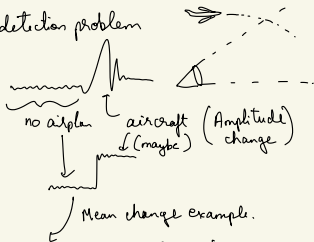 detection problem
no airplan
aircraft (Amplitude
(maybe) change)
Mean change example.